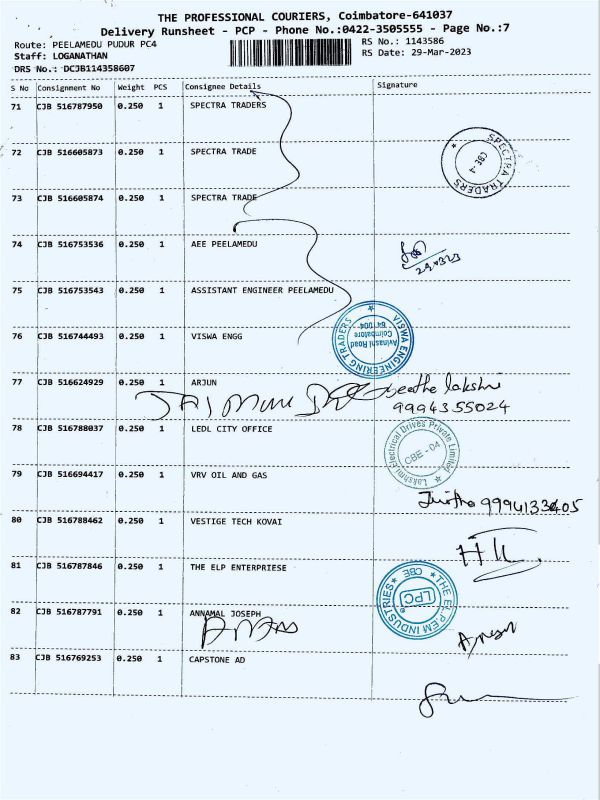 THE PROFESSIONAL COURIERS, Coimbatore-641037
Delivery Runsheet - PCP - Phone No.:0422-3505555 - Page No.:7
Route: PEELAMEDU PUDUR PC4
RS No.: 1143586
Staff: LOGANATHAN
RS Date: 29-Mar-2023
DRS No.: DCJB114358607
S No Consignment No Weight PCS Consignee Details Signature
71 CJB 516787950 0.250 1 SPECTRA TRADERS
72 CJB 516605873 0.250 1 SPECTRA TRADE
SPECTRA TRADERS CBE-4
73 CJB 516605874 0.250 1 SPECTRA TRADE
74 CJB 516753536 0.250 1 AEE PEELAMEDU
75 CJB 516753543 0.250 1 ASSISTANT ENGINEER PEELAMEDU
76 CJB 516744493 0.250 1 VISWA ENGG
VISWA ENGINEERING TRADERS
Avinashi Road
Coimbatore
641 004
77 CJB 516624929 0.250 1 ARJUN
9994355024
78 CJB 516788037 0.250 1 LEDL CITY OFFICE
Lakshmi Electrical Drives Private Limited
CBE - 04
79 CJB 516694417 0.250 1 VRV OIL AND GAS
9994133405
80 CJB 516788462 0.250 1 VESTIGE TECH KOVAI
81 CJB 516787846 0.250 1 THE ELP ENTERPRIESE
THE EL.P.EM INDUSTRIES
CBE
LPC
82 CJB 516787791 0.250 1 ANNAMAL JOSEPH
83 CJB 516769253 0.250 1 CAPSTONE AD